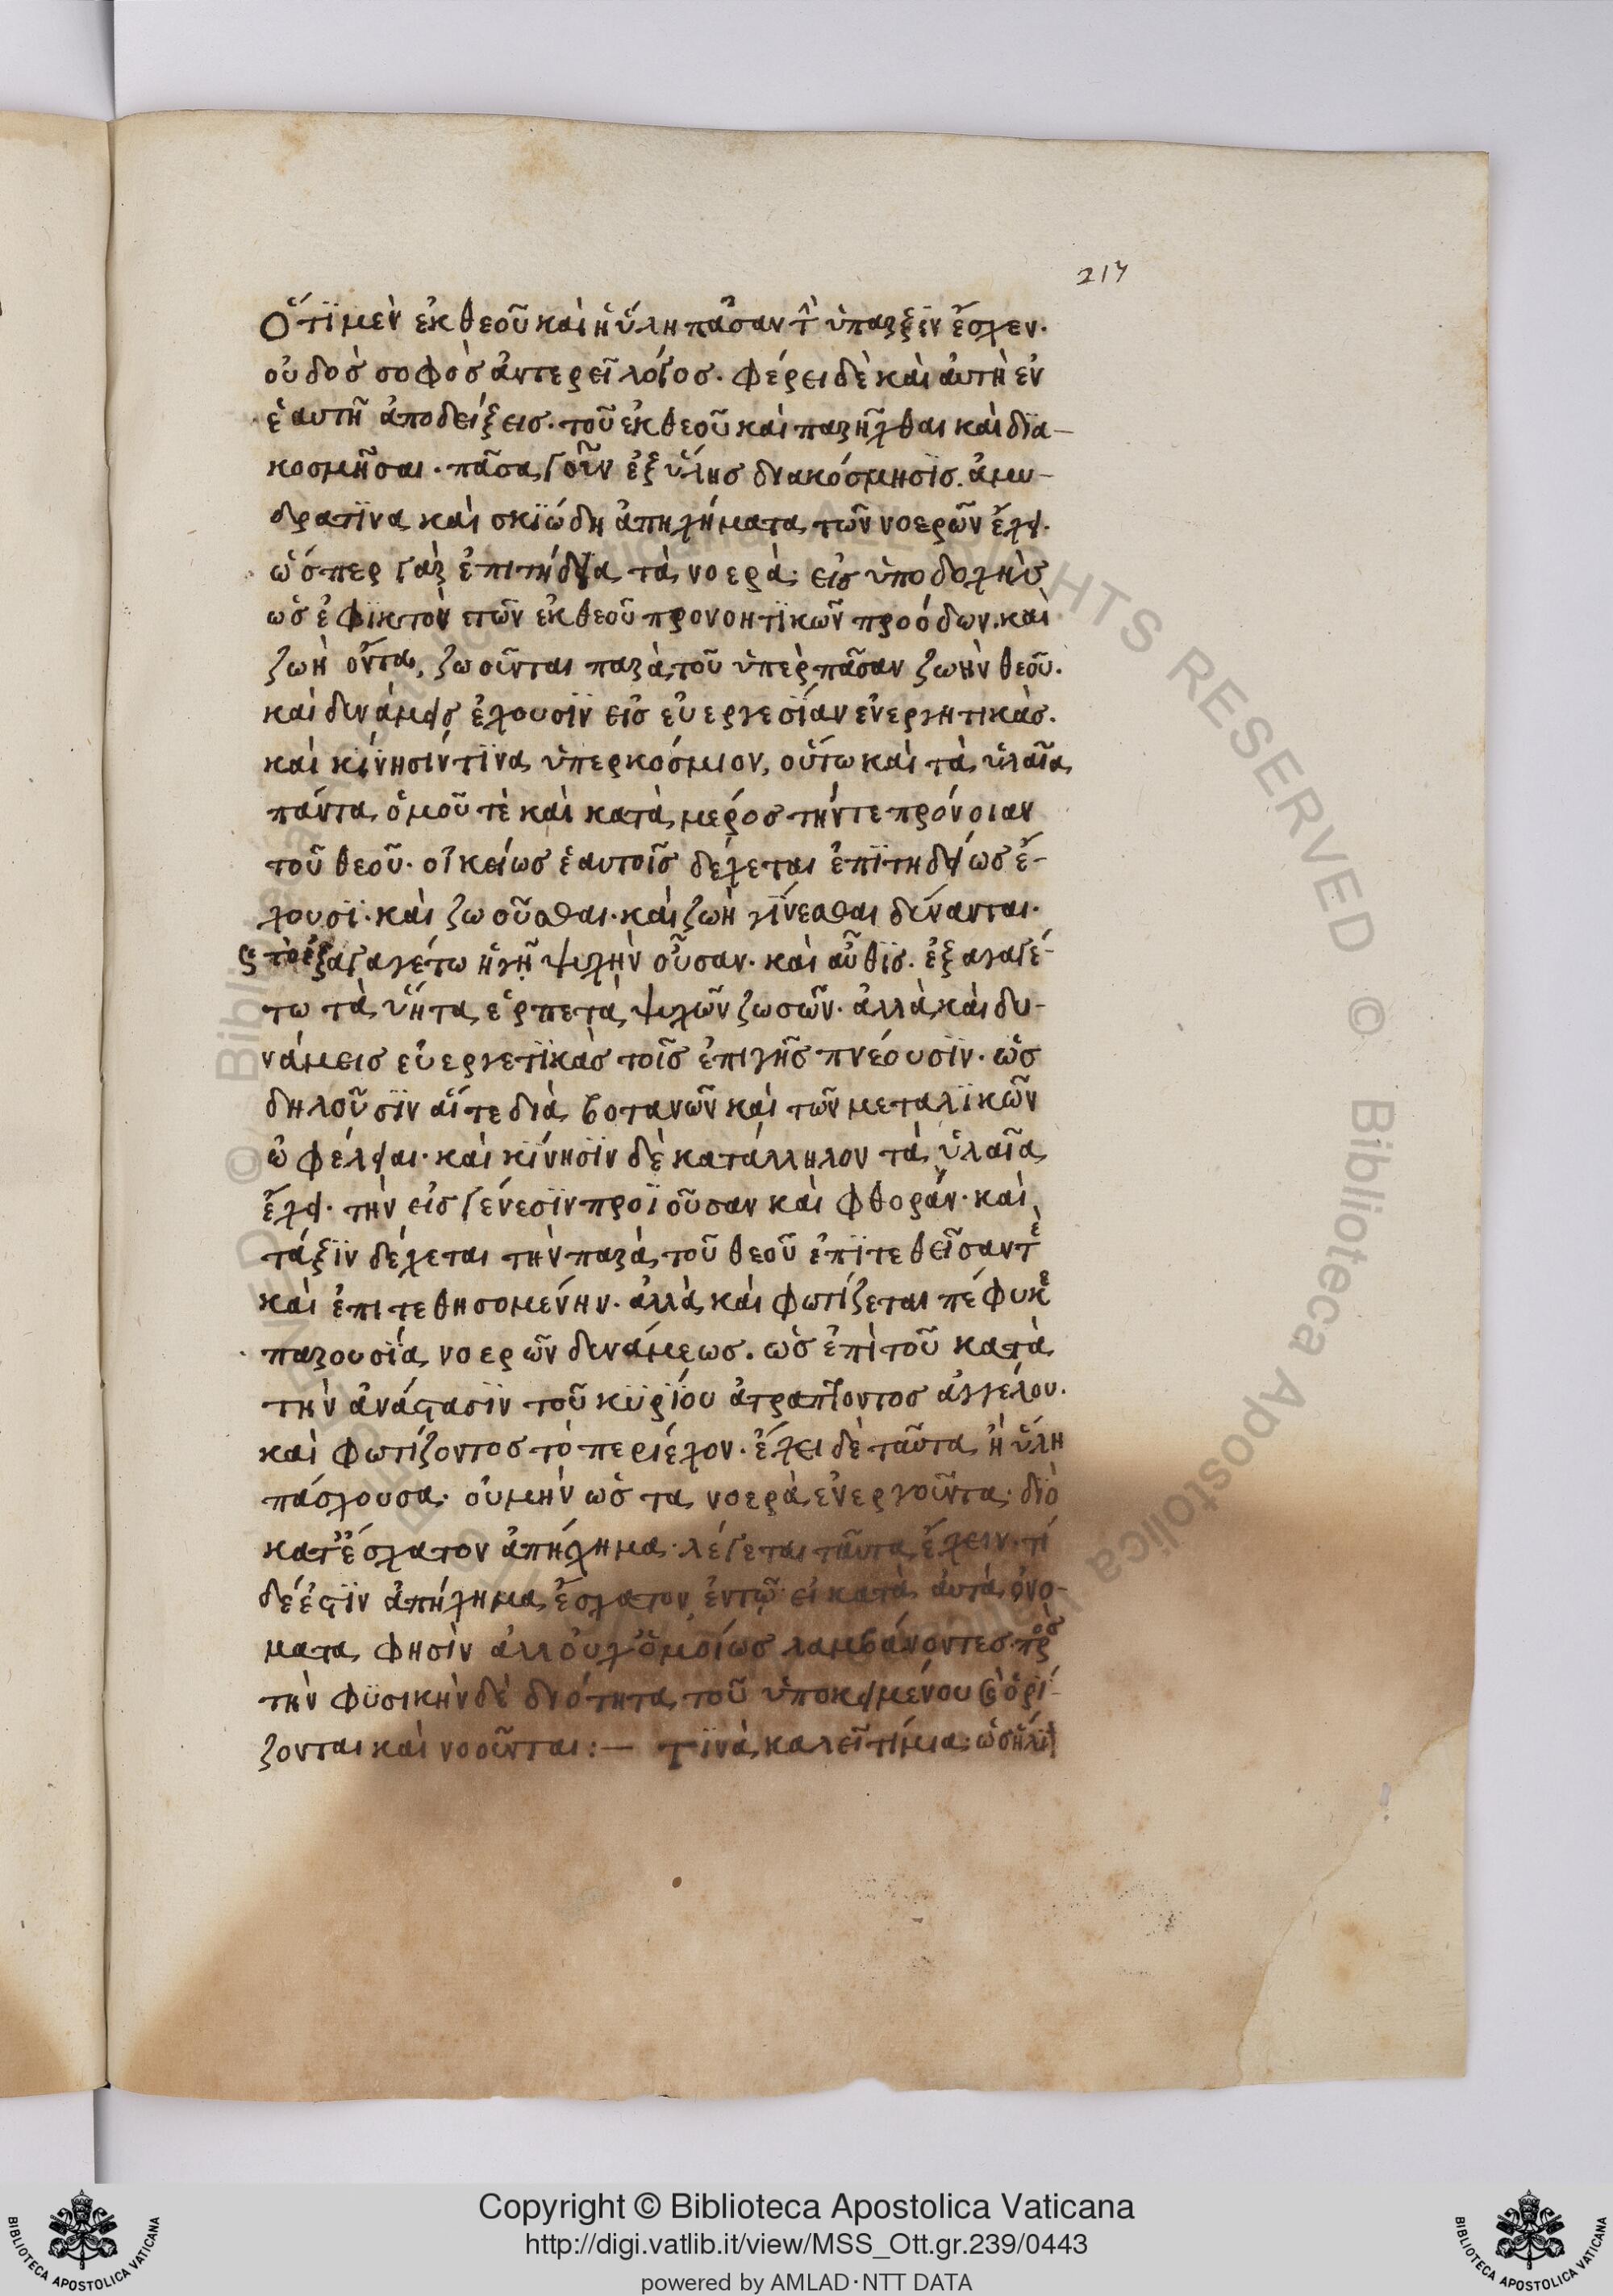 217
Ὅτϊ μὲν ἐκ θεοῦ καὶ ἡ ὕλη πᾶσαν τ̂ ὑπαρξϊν ἔσχεν·
οὐδοσ σοφὸσ ἀντερεῖ λόγοσ. φέρει δὲ καὶ αὐτὴ ἐν
ἑαυτῆ ἀποδείξεισ. τοῦ ἐκ θεοῦ καὶ παρῆχθαι καὶ δϊα-
κοσμῆσαι. πᾶσα γοῦν ἐξ ὕλησ διακόσμησϊσ. ἀμυ-
δρατϊνα καὶ σκϊώδη ἀπηχήματα τῶν νοερῶν ἔχει.
ὥσπερ γὰρ ἐπιτήδεια τὰ νοερὰ. εἰσ ὑποδοχὴσ
ὡσ ἐφϊκτὸν τῶν ἐκ θεοῦ προνοητϊκῶν προόδων. καὶ
ζωὴ ὄντα, ζωοῦνται παρὰ τοῦ ὑπὲρ πᾶσαν ζωὴν θεοῦ.
καὶ δυνάμεισ ἔχουσϊν εἰσ εὐεργεσϊαν ἐνεργητικὰσ.
καὶ κίνησιν τϊνα ὑπερκόσμιον, οὕτω καὶ τὰ ὑλαῖα
πάντα ὁμοῦ τὲ καὶ κατὰ μεροσ τήντε πρόνοιαν
τοῦ θεοῦ. οἰκείωσ ἑαυτοῖσ δέχεται ἐπϊτηδείωσ ἔ-
χουσϊ. καὶ ζωοῦσθαι. καὶ ζωὴ γϊνεσθαι δύνανται.
ϛ τὸ ἐξαγαγέτω ἡ γῆ ψυχὴν οὖσαν. καὶ αὖθϊσ. ἐξαγαγέ-
τω τὰ ὕητα ἑρπετὰ ψυχῶν ζωσῶν. ἀλλὰ καὶ δυ-
νάμεισ εὐεργετϊκὰσ τοῖσ ἐπιγῆσ πνέουσϊν. ὡσ
δηλοῦσϊν αἵ τε διὰ βοτανῶν καὶ τῶν μεταλϊκῶν
ὠφέλειαι. καὶ κϊνησϊν δὲ κατάλληλον τὰ ὑλαῖα
ἔχει. τὴν εἰσ γένεσϊν προϊοῦσαν καὶ φθοράν. καὶ
τάξϊν δέχεται τὴν παρὰ τοῦ θεοῦ ἐπϊτεθεῖσαν τὲ
καὶ ἐπιτεθησομένην. ἀλλὰ καὶ φωτίζεται πέφυκε
παρουσία νοερῶν δυνάμεωσ. ὡσ ἐπὶ τοῦ κατὰ
τὴν ἀνάστασϊν τοῦ κϋρϊου ἀστράπτοντοσ ἀγγέλου.
καὶ φωτίζοντοσ τὸ περιέχον. ἔχει δὲ ταῦτα ἡ ὕλη
πάσχουσα. οὐμὴν ὡσ τα νοερὰ ἐνεργοῦντα. δϊὸ
κατ ἔσχατον ἀπήχημα. λέγεται ταῦτα ἔχειν. τί
δέ ἐστϊν ἀπήχημα ἔσχατον ἐν τῶ. εἰ κατὰ αὐτὰ ὀνο-
ματα φησὶν ἀλλ οὐχ ὁμοίωσ λαμβάνοντεσ πρὸσ
τὴν φϋσικὴν δὲ διότητα τοῦ ὑποκειμένου ὁρί-
ζονται καὶ νοοῦνται :— Τϊνὰ καλεῖ τίμια.